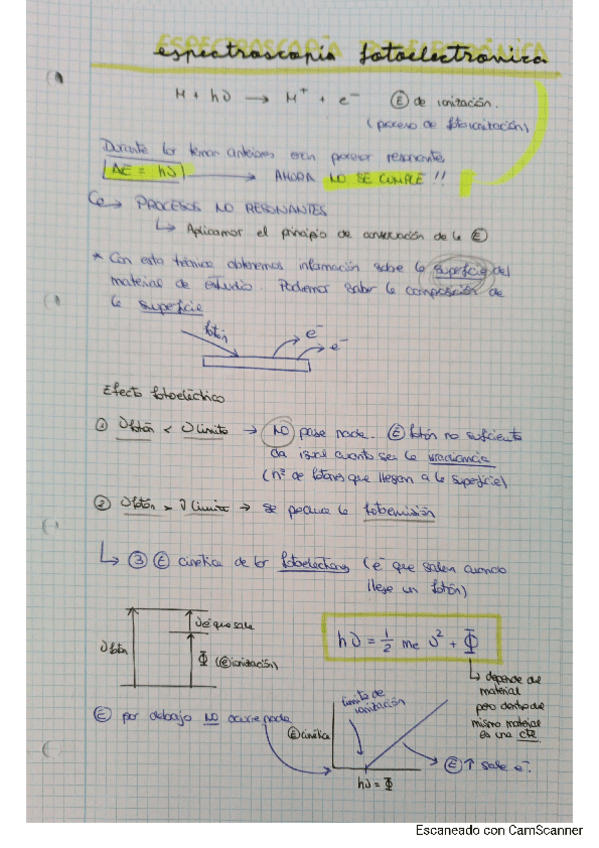 espectroscopia fotoelectrónica
M + hν → M⁺ + e⁻ Ⓔ de ionización.
(proceso de fotoionización)
Durante los temas anteriores eran procesos resonantes
ΔE = hν → AHORA NO SE CUMPLE !!
↳ PROCESOS NO RESONANTES
↳ Aplicamos el principio de conservación de la Ⓔ
* Con esta técnica obtenemos información sobre la superficie del
material de estudio. Podemos saber la composición de
la superficie
fotón
e⁻
e⁻
Efecto fotoeléctrico
① ν fotón < ν límite → NO pasa nada. Ⓔ fotón no suficiente
da igual cuanto sea la irradiancia
(nº de fotones que llegan a la superficie)
② ν fotón > ν límite → se produce la fotoemisión
↳ ③ Ⓔ cinética de los fotoelectrons (e⁻ que salen cuando
llega un fotón)
ν fotón
ν e⁻ que sale
Φ (Ⓔ ionización)
hν = 1/2 me υ² + Φ
↳ depende del
material
pero dentro del
mismo material
es una cte
Ⓔ por debajo NO ocurre nada
límite de
ionización
Ⓔ cinética
Ⓔ↑ sale e⁻.
hν = Φ
Escaneado con CamScanner